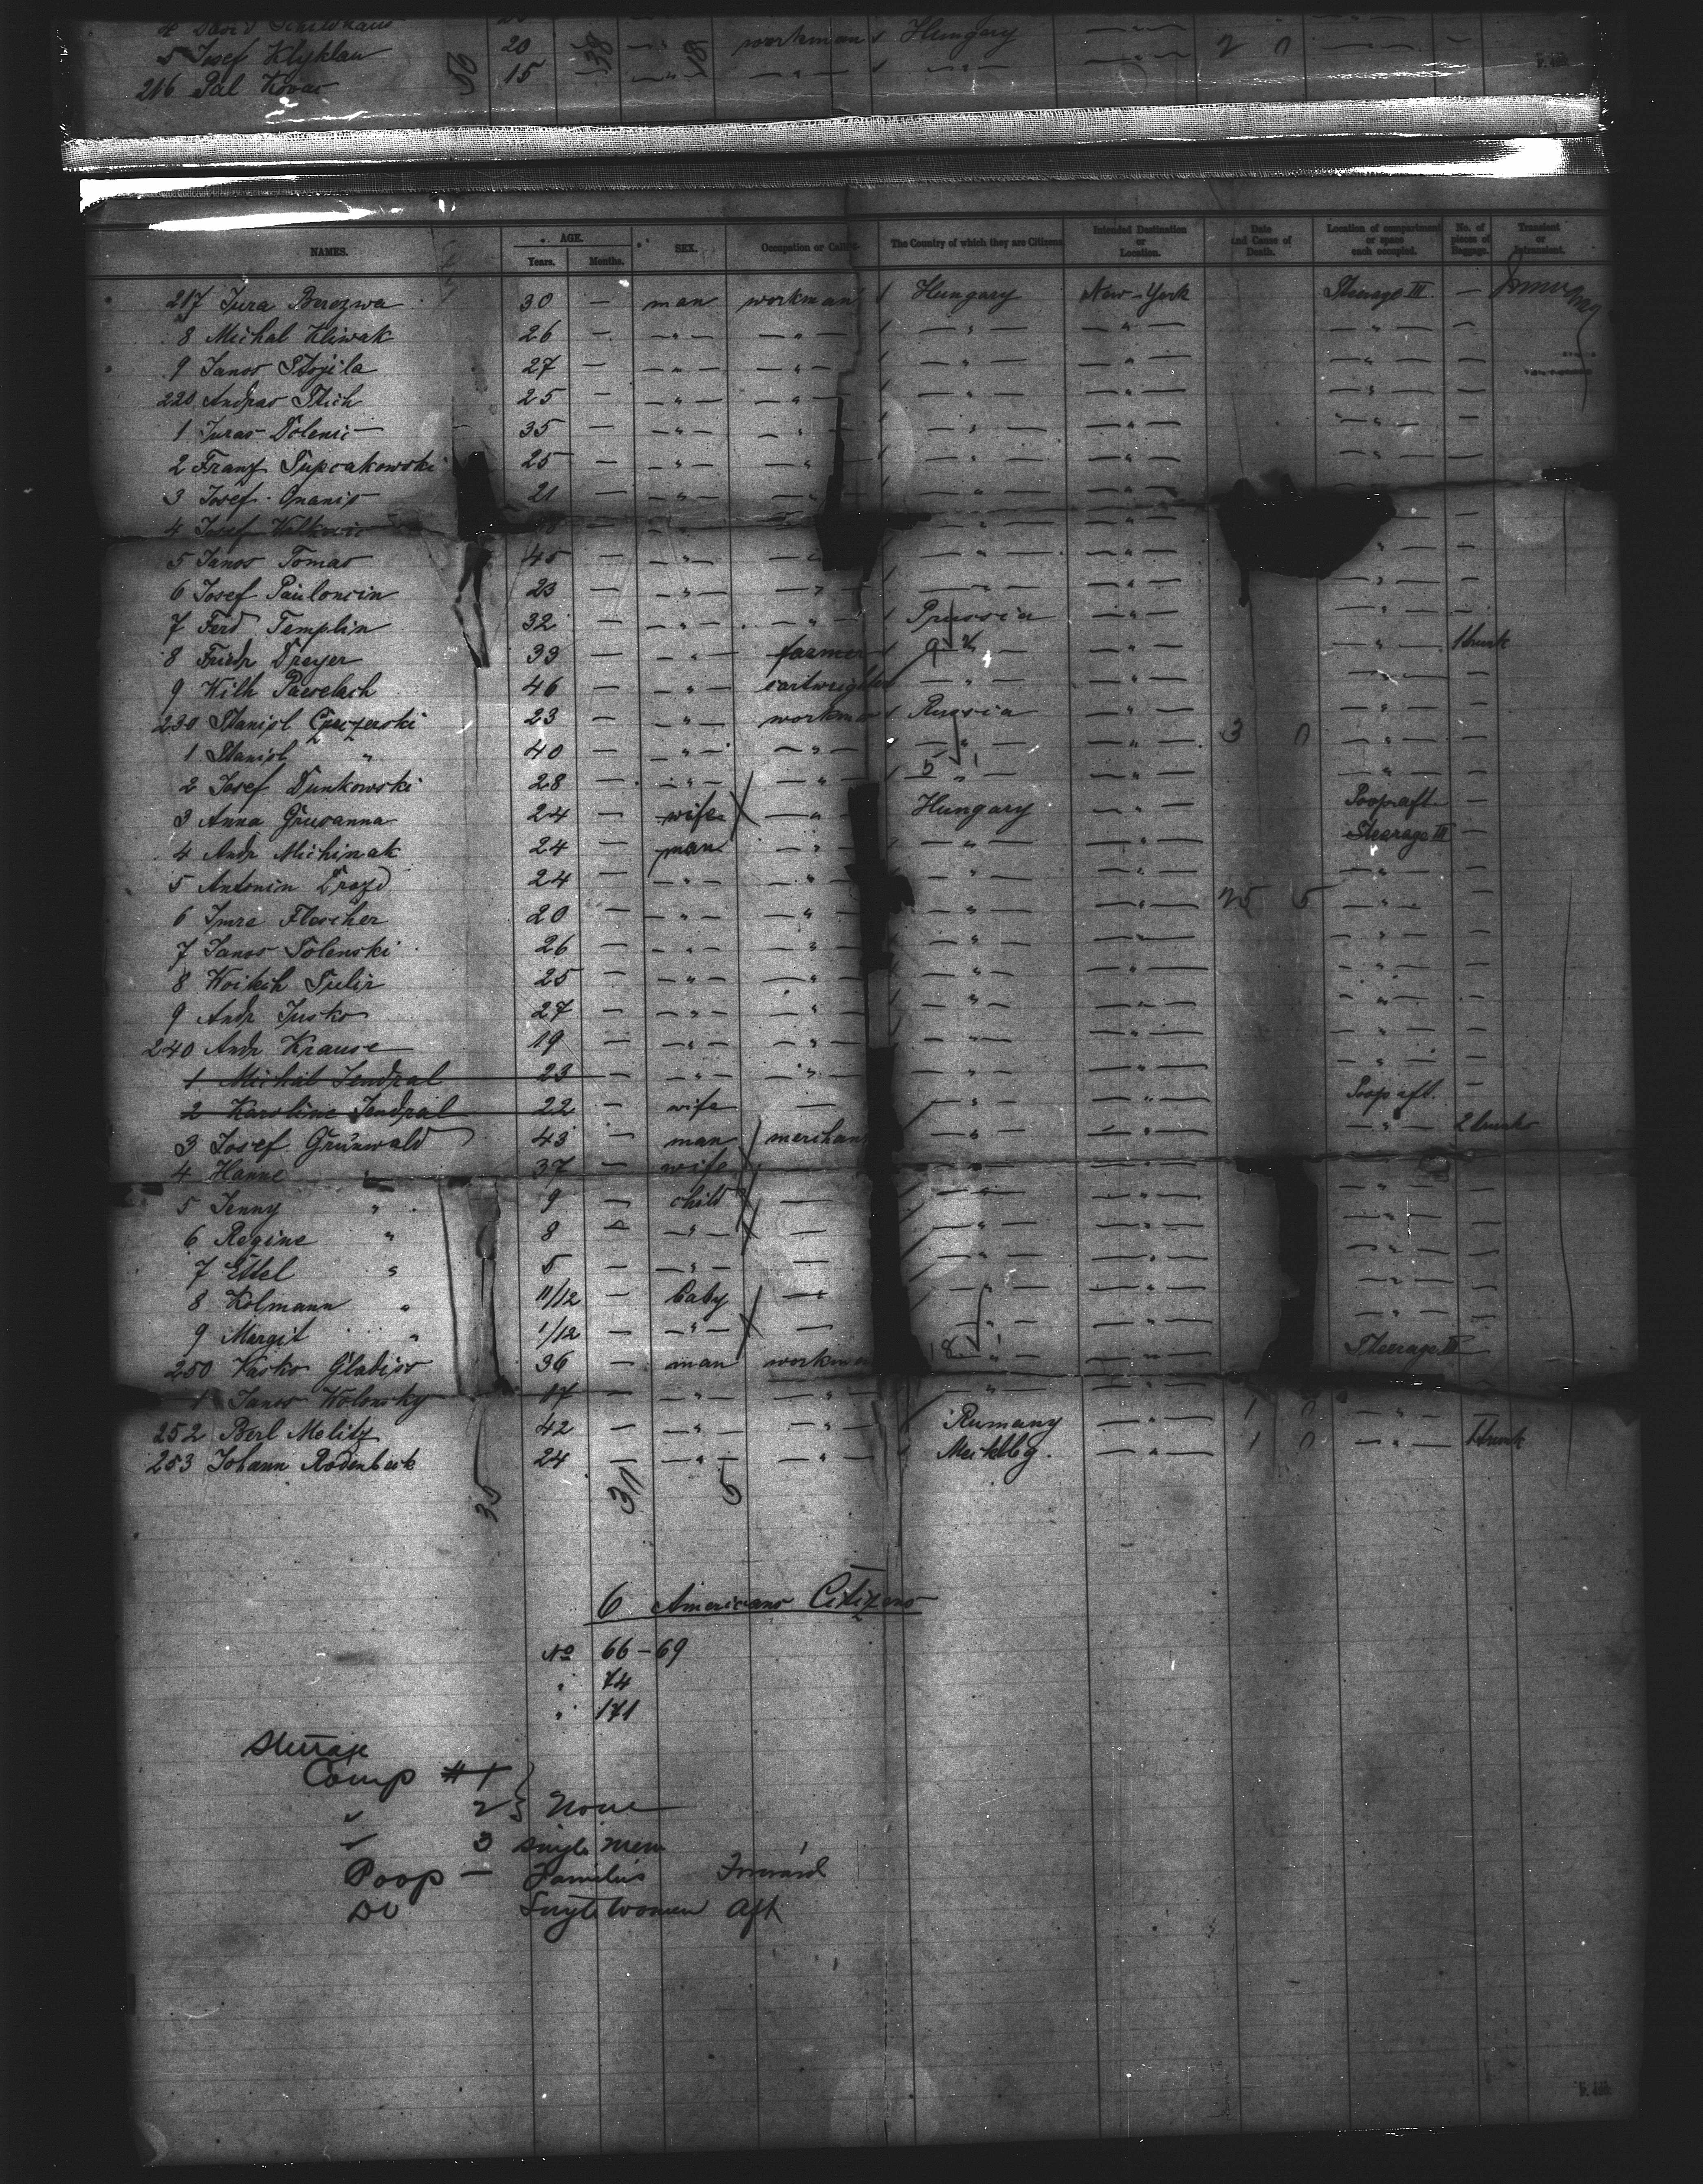 5 Josef Klyklan 20 workman Hungary 2 0
216 Pal Kovac 15
NAMES. AGE. Years. Months. SEX. Occupation or Calling The Country of which they are Citizens Intended Destination or Location. Date and Cause of Death. Location of compartment or space each occupied. No. of pieces of Baggage. Transient or Intransient.
217 Jura Berezwa 30 — man workman Hungary New-York Steerage III —
8 Michal Kliwak 26 — — " — — " — — " — — " — — " — —
9 Janos Stojila 27 — — " — — " — — " — — " — — " — —
220 Andras Stich 25 — — " — — " — — " — — " — — " — —
1 Juras Dolenic 35 — — " — — " — — " — — " — — " — —
2 Franz Supcakowski 25 — — " — — " — — " — — " — — " — —
3 Josef 21 — — " — — " — — " — — " — — " — —
4 Josef — — " — — " — — " — —
5 Janos Tomas 45 — — " — — " — — " — — " — — " — —
6 Josef Pauloncin 23 — — " — — " — — " — — " — — " — —
7 Ferd Templin 32 — — " — — " — Prussia — " — — " — —
8 Friedr Dreyer 33 — — " — farmer — " — — " — — " — 1 trunk
9 Wilh Paeselach 46 — — " — cartwright — " — — " — — " — —
230 Stanisl Czeszerski 23 — — " — workman Russia — " — — " — —
1 Stanisl " 40 — — " — — " — — " — — " — 3 0 — " — —
2 Josef Dunkowski 28 — — " — — " — 5 " — " — — " — —
3 Anna Grusanna 24 — wife — " — Hungary — " — Poop aft. —
4 Andr Michinak 24 — man — " — — " — — " — Steerage III —
5 Antonin Drozd 24 — — " — — " — — " — — " — — " — —
6 Imre Floscher 20 — — " — — " — — " — — " — 25 5 — " — —
7 Janos Solenski 26 — — " — — " — — " — — " — — " — —
8 Woitich Sulir 25 — — " — — " — — " — — " — — " — —
9 Andr Jusko 27 — — " — — " — — " — — " — — " — —
240 Andr Krause 19 — — " — — " — — " — — " — — " — —
1 Michal Jendral 23 — — " — — " — — " — — " — — " — —
2 Karoline Jendral 22 — wife — — " — — " — Poop aft. —
3 Josef Grünwald 43 — man merchant — " — — " — — " — 2 trunks
4 Hanne " 37 — wife —
5 Jenny " 9 — child — — " — — " — — " — —
6 Regine " 8 — — " — — — " — — " — — " — —
7 Ettel " 5 — — " — — — " — — " — — " — —
8 Kolmann " 11/12 — baby — — " — — " — — " — —
9 Margit " 1/12 — — " — — — " — — " — — " — —
250 Vasko Gladiss 36 — man workman — " — — " — Steerage III —
1 Janos Wolonsky 17 — — " — — " — — " — — " — — " — —
252 Berl Melitz 42 — — " — — " — Rumany — " — 1 0 — " — —
253 Johann Rodenbeck 24 — — " — — " — Mecklbg. — " — 1 0 — " — 1 trunk
35 30 5
6 Americans Citizens
No 66-69
" 74
" 171
Steerage
Comp #1
" 2 } None
" 3 Single men
Poop — Families Forward
Do Single women Aft